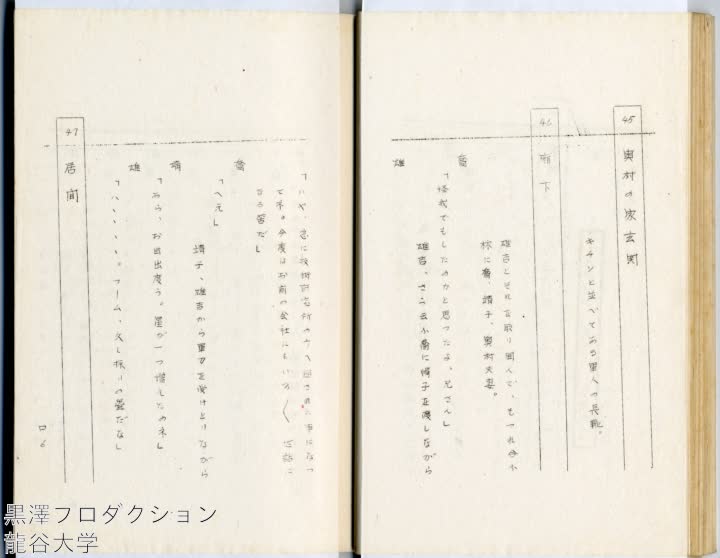 45 奥村の家玄関
キチンと並べてある軍人の長靴。
46 廊下
雄吉とそれを取り囲んで、もつれ合ふ
様に喬、靖子、奥村夫妻。
喬
「怪我でもしたのかと思つたよ、兄さん」
雄吉、さう云ふ喬に帽子を渡しながら
雄
「いや、急に技術研究所の方へ廻される事になつ
て ね。今度はお前の会社にもいろ〱 世話に
なる筈だ」
喬
「へえ」
靖子、雄吉から軍刀を受けとりながら
靖
「あら、お目出度う。星が一つ増したのネ」
雄
「ハヽヽヽヽ。フーム、久し振りの畳だな」
47 居間
口 6
黒澤プロダクション
龍谷大学